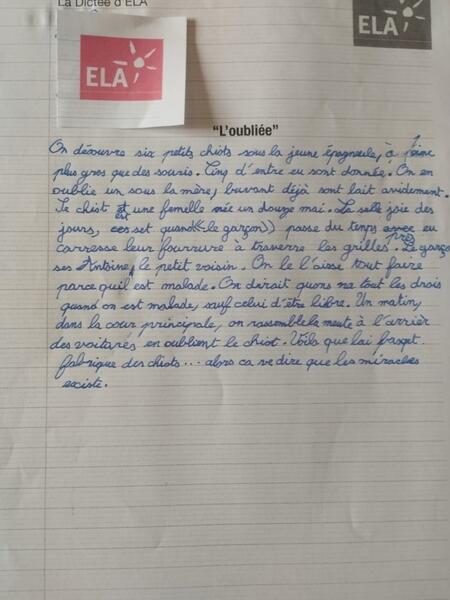 La Dictée d'ELA
ELA
ELA
"L'oubliée"
On découvre six petits chiots sous la jeune épagneule, à peine
plus gros que des souris. Cinq d'entre eu sont donnée. On en
oublie un sous la mère, buvant déjà sont lait avidement.
Le chiot et une femelle née un douze mai. La selle joie des
jours, ces set quand «le garçon» passe du temps avec eu
carresse leur fourrure à traverre les grilles. Le garço
ses Antoine, le petit voisin. On le l'aisse tout faire
parce qu'il est malade. On dirait quons na tout les droits
quand on est malade, sauf celui d'être libre. Un matin,
dans la cour principale, on rassemble la meute à l'arrièr
des voitures en oublient le chiot. Voila que lai
fabrique des chiots... alors ca ve dire que les miracles
existe.